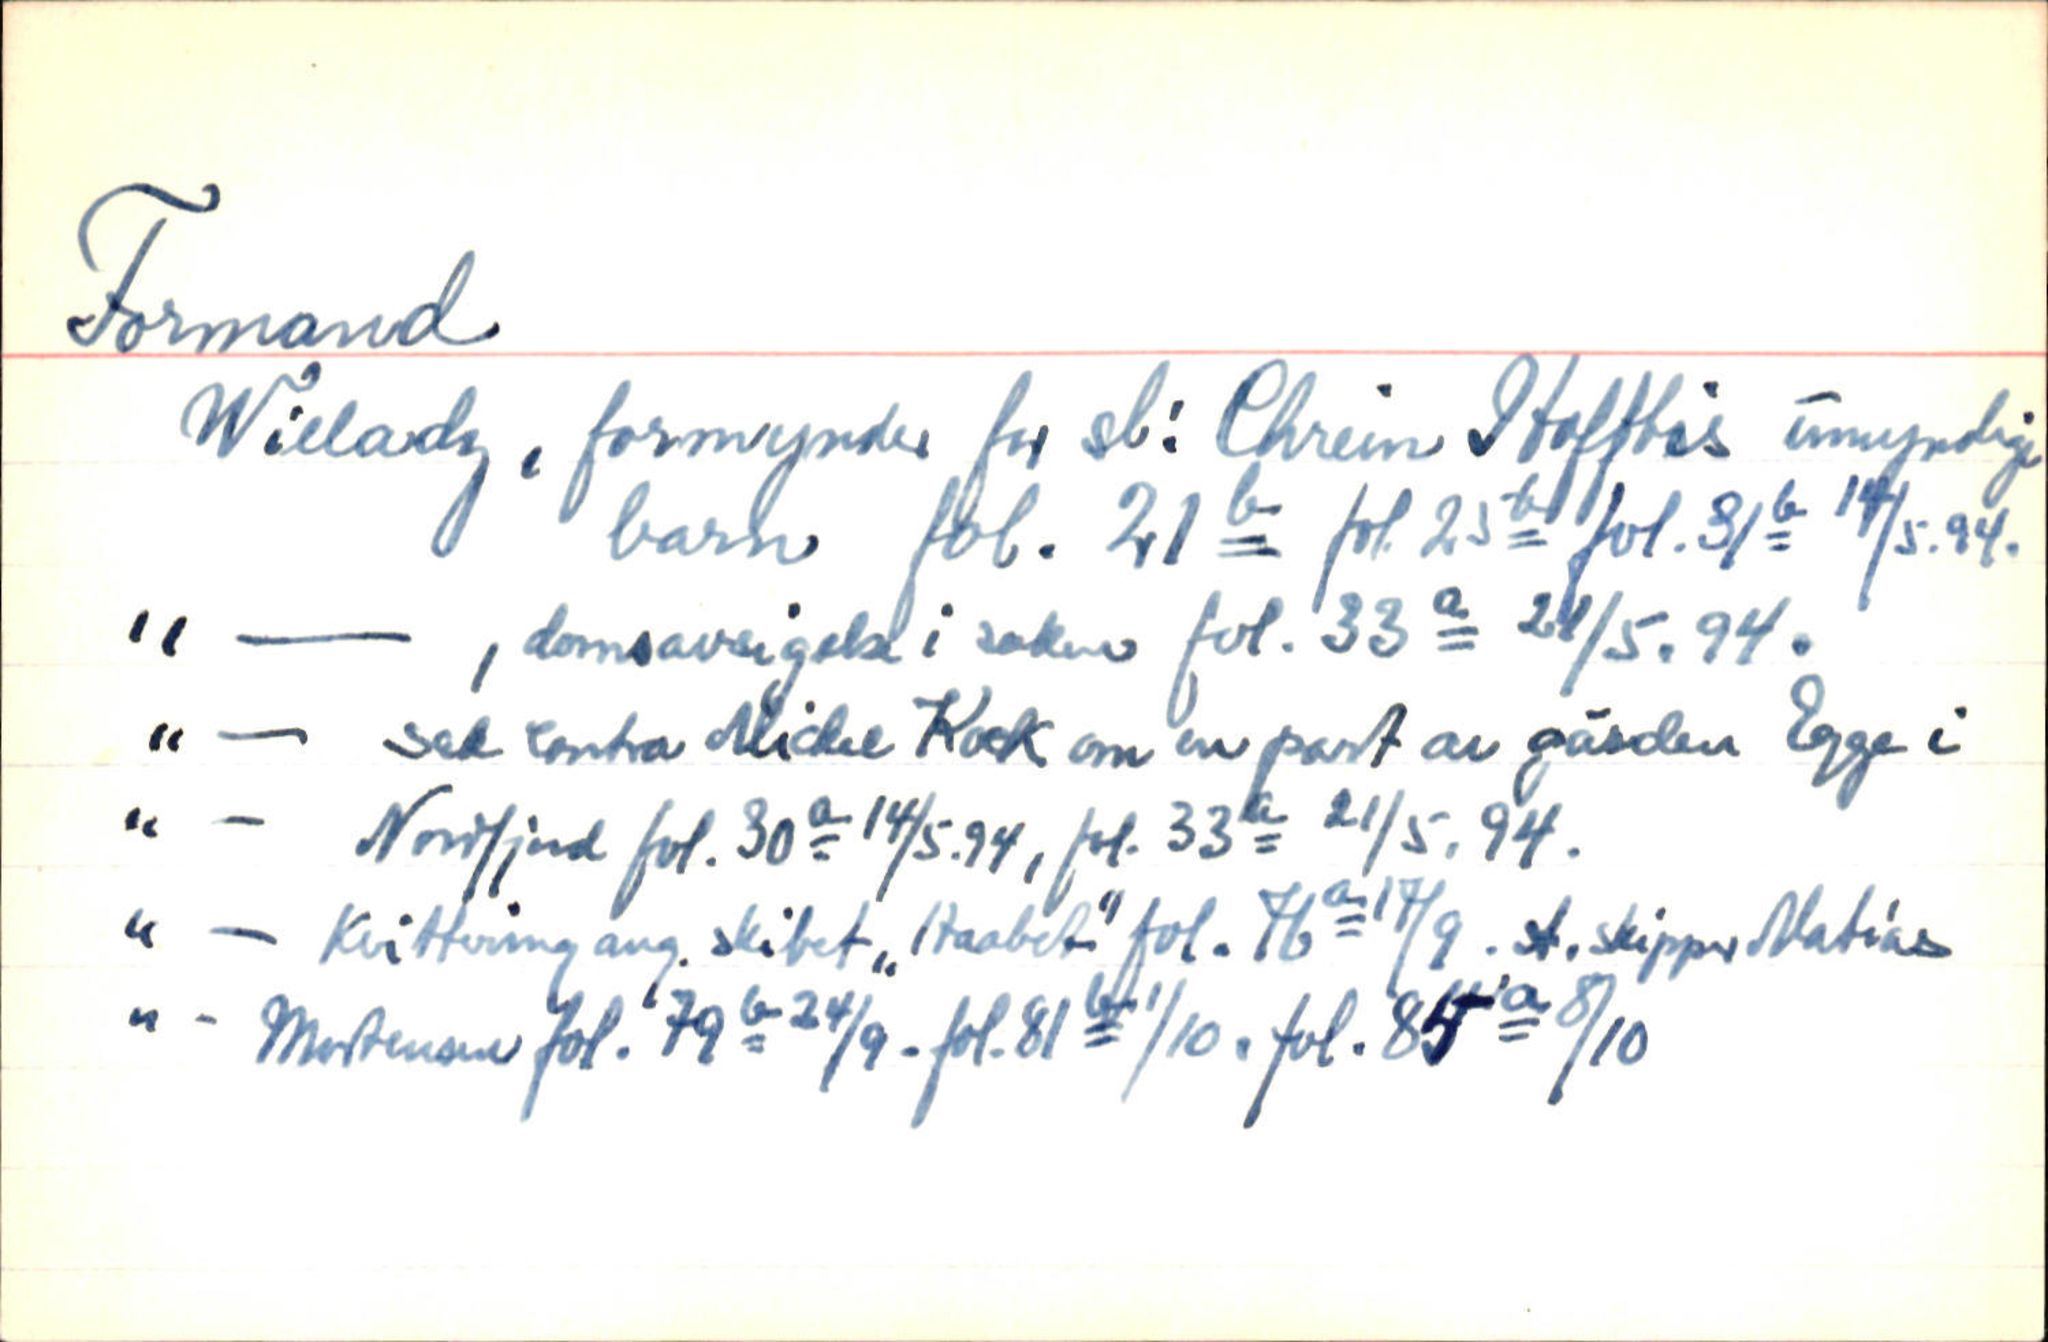 Formand
Willadz, formynder for sl: Chrein umyndige
barn fol. 21b fol. 25b fol. 31b 14/5.94.
" — , domsavsigelse i saken fol. 33a 21/5.94.
" — sak contra Mickel Kock om en part av gården Egge i
" — Nordfjord fol. 30a 14/5.94, fol. 33a 21/5.94.
" — Kvittering ang. skibet „Haabet" fol. 76a 17/9. skipper Matias
" - Mortensen fol. 79b 24/9. fol. 81b 1/10. fol. 85a 8/10